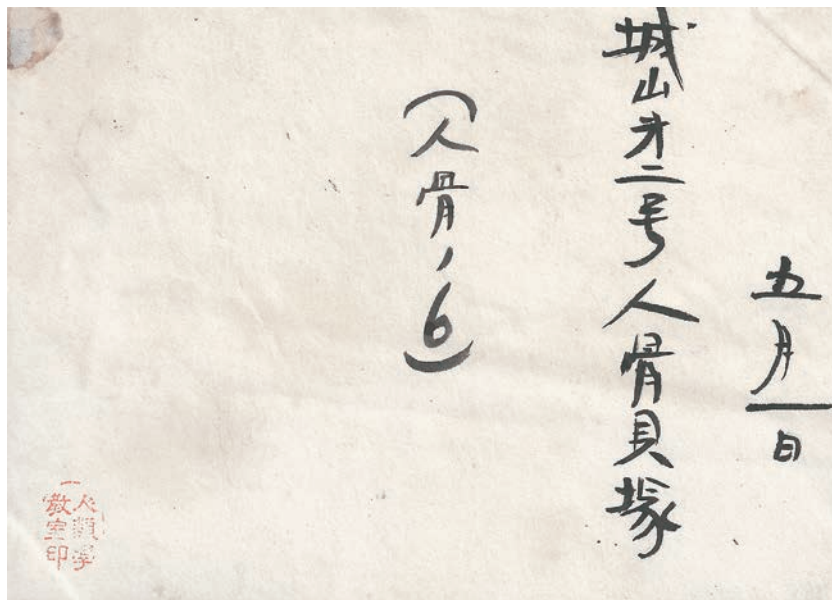 五月一日
城山才二号人骨貝塚
(人骨ノ6)
人類學
教室印